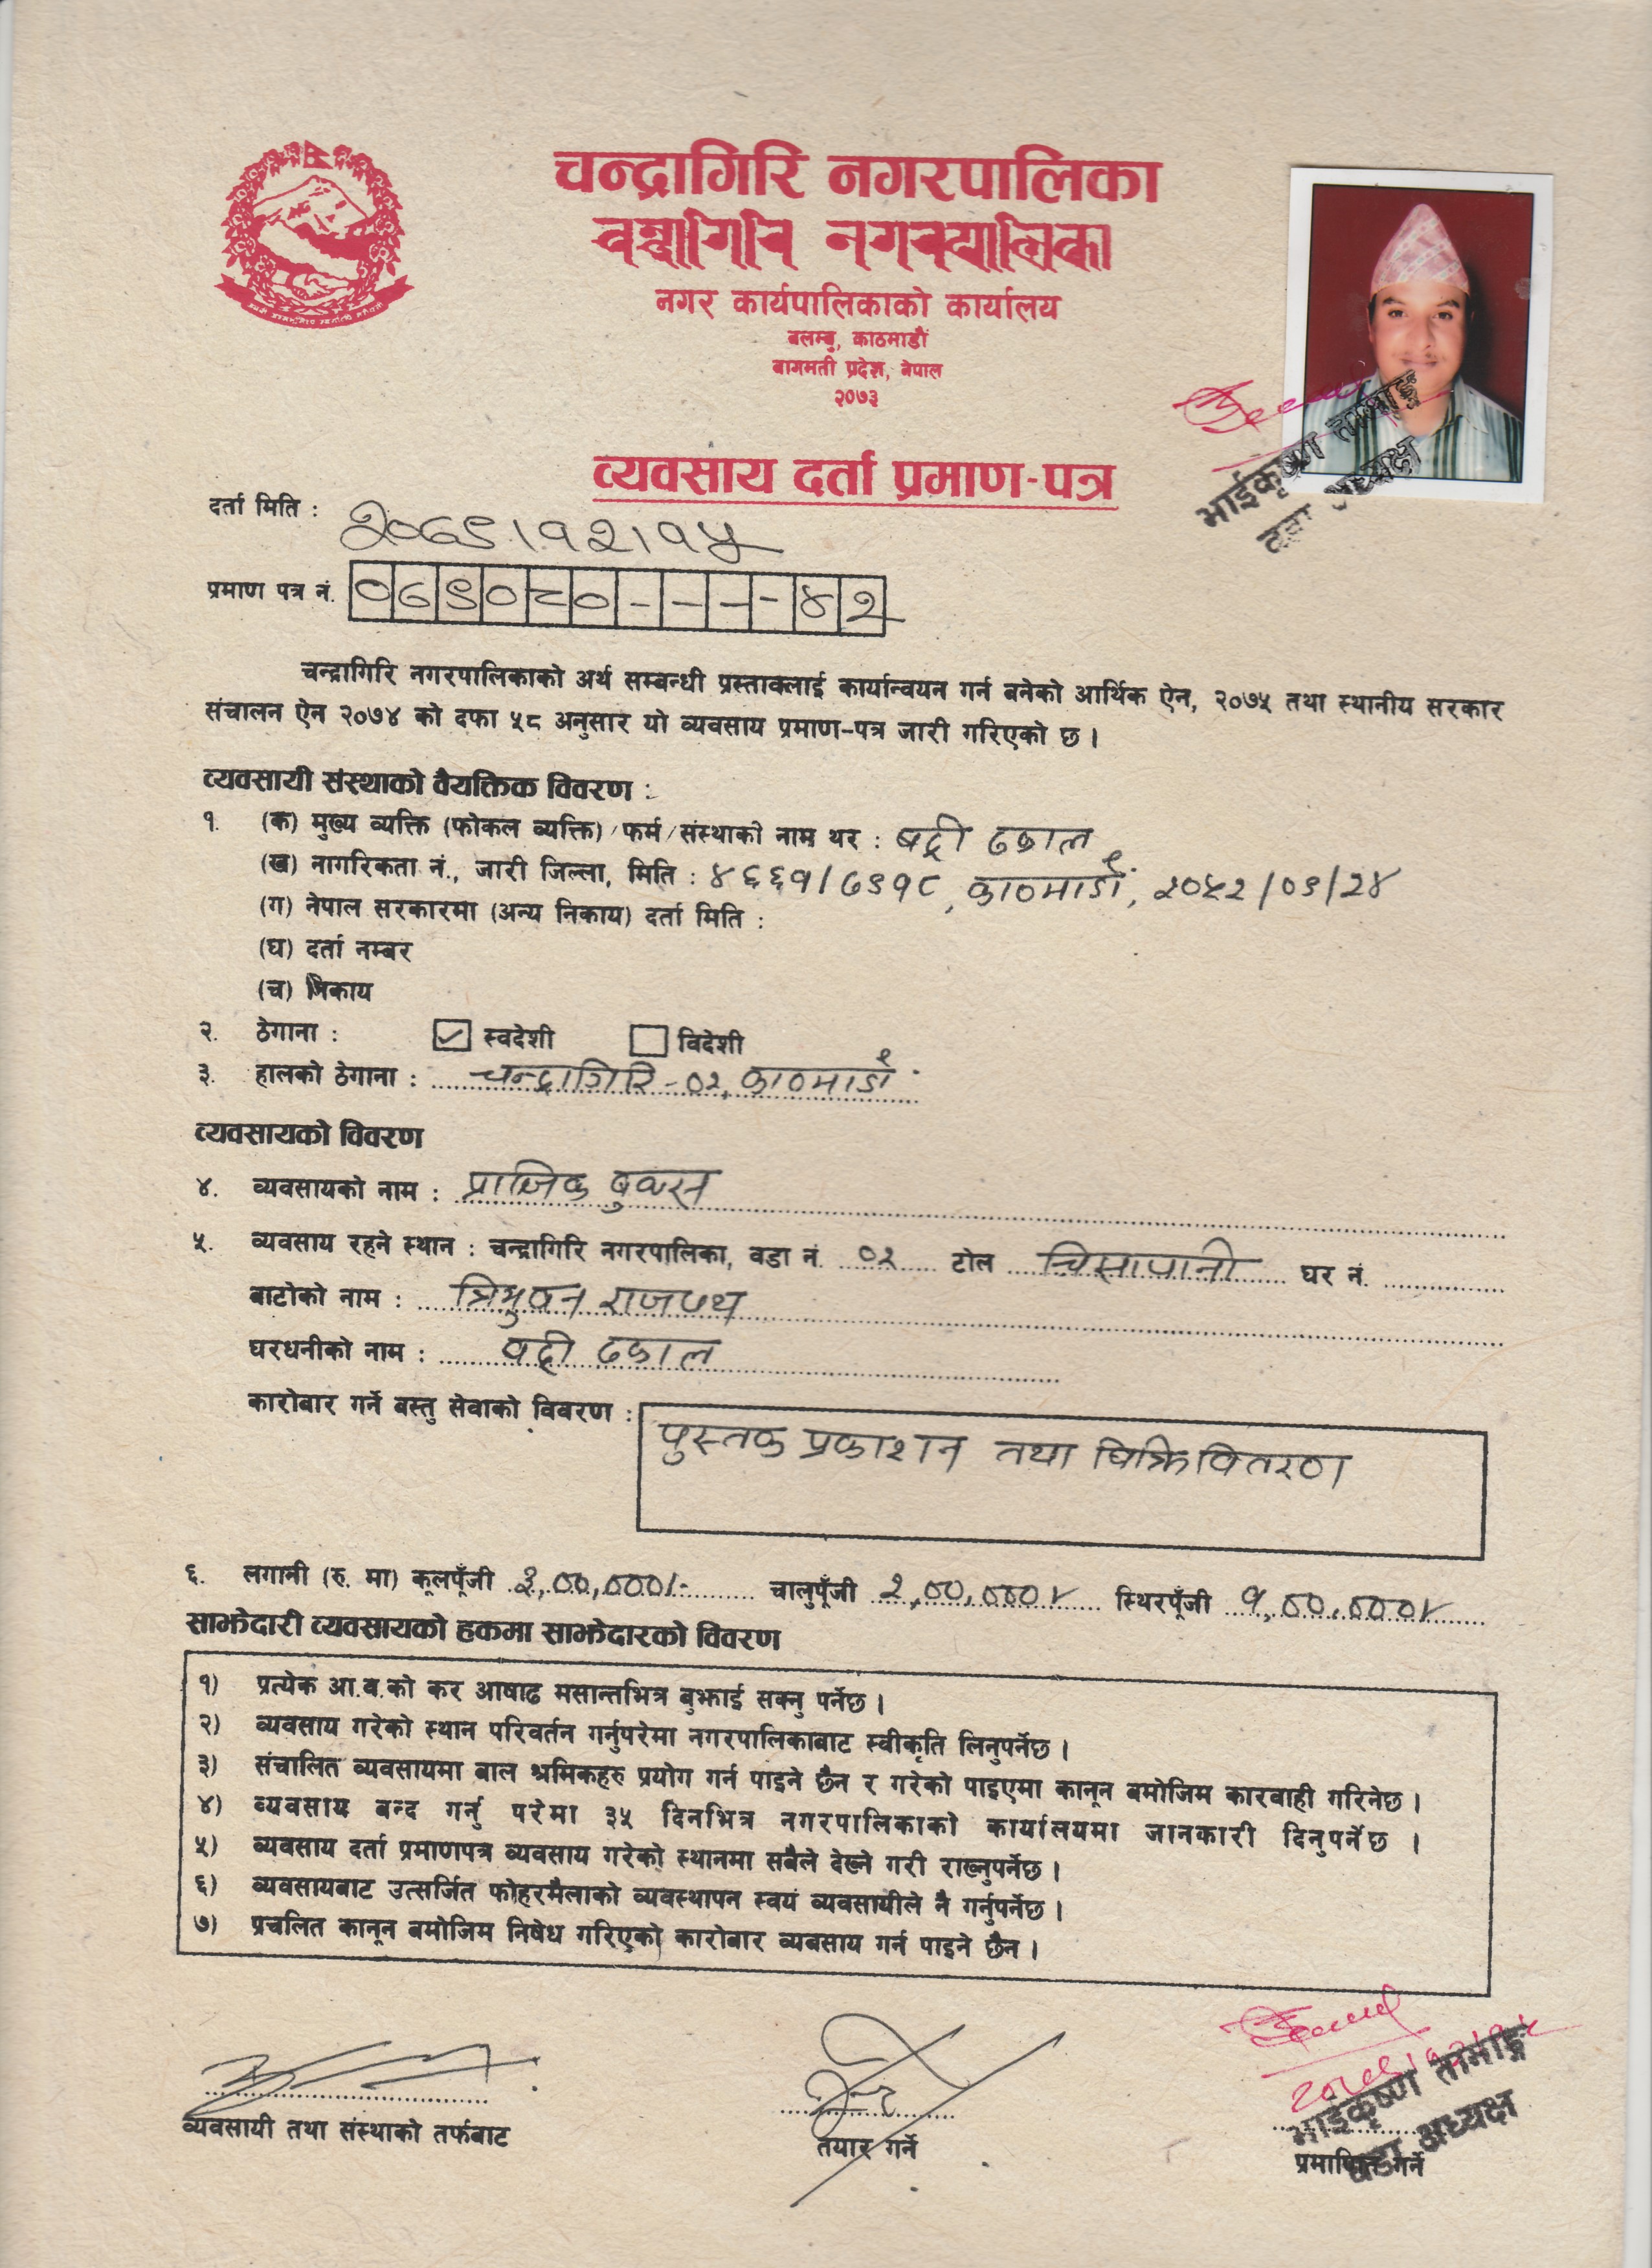 चन्द्रागिरि नगरपालिका
नगर कार्यपालिकाको कार्यालय
बलम्बु, काठमाडौं
बागमती प्रदेश, नेपाल
२०७३
व्यवसाय दर्ता प्रमाण-पत्र
भाईकृष्ण तामाङ्ग
वडा अध्यक्ष
दर्ता मिति : २०७९।१२।१५
प्रमाण पत्र नं. ०७९०८०----४२
चन्द्रागिरि नगरपालिकाको अर्थ सम्बन्धी प्रस्तावलाई कार्यान्वयन गर्न बनेको आर्थिक ऐन, २०७५ तथा स्थानीय सरकार
संचालन ऐन २०७४ को दफा ५८ अनुसार यो व्यवसाय प्रमाण-पत्र जारी गरिएको छ ।
व्यवसायी संस्थाको वैयक्तिक विवरण :
१. (क) मुख्य व्यक्ति (फोकल व्यक्ति)/फर्म/संस्थाको नाम थर : बद्री ढकाल
(ख) नागरिकता नं., जारी जिल्ला, मिति : ४६६१/७९१८, काठमाडौं, २०५२/०९/२४
(ग) नेपाल सरकारमा (अन्य निकाय) दर्ता मिति :
(घ) दर्ता नम्बर
(च) निकाय
२. ठेगाना : स्वदेशी विदेशी
३. हालको ठेगाना : चन्द्रागिरि-०२, काठमाडौं
व्यवसायको विवरण
४. व्यवसायको नाम : प्राज्ञिक बुक्स
५. व्यवसाय रहने स्थान : चन्द्रागिरि नगरपालिका, वडा नं. ०२ टोल चिसापानी घर नं.
बाटोको नाम : त्रिभुवन राजपथ
घरधनीको नाम : बद्री ढकाल
कारोबार गर्ने वस्तु सेवाको विवरण :
पुस्तक प्रकाशन तथा बिक्रि वितरण
६. लगानी (रु. मा) कूलपूँजी ३,००,०००/- चालुपूँजी २,००,०००/- स्थिरपूँजी १,००,०००/-
साझेदारी व्यवसायको हकमा साझेदारको विवरण
१) प्रत्येक आ.व.को कर आषाढ मसान्तभित्र बुझाई सक्नु पर्नेछ ।
२) व्यवसाय गरेको स्थान परिवर्तन गर्नुपरेमा नगरपालिकाबाट स्वीकृति लिनुपर्नेछ ।
३) संचालित व्यवसायमा बाल श्रमिकहरु प्रयोग गर्न पाइने छैन र गरेको पाइएमा कानून बमोजिम कारवाही गरिनेछ ।
४) व्यवसाय बन्द गर्नु परेमा ३५ दिनभित्र नगरपालिकाको कार्यालयमा जानकारी दिनुपर्नेछ ।
५) व्यवसाय दर्ता प्रमाणपत्र व्यवसाय गरेको स्थानमा सबैले देख्ने गरी राख्नुपर्नेछ ।
६) व्यवसायबाट उत्सर्जित फोहरमैलाको व्यवस्थापन स्वयं व्यवसायीले नै गर्नुपर्नेछ ।
७) प्रचलित कानून बमोजिम निषेध गरिएको कारोबार व्यवसाय गर्न पाइने छैन ।
२०७९।१२।१५
भाईकृष्ण तामाङ्ग
वडा अध्यक्ष
व्यवसायी तथा संस्थाको तर्फबाट
तयार गर्ने
प्रमाणित गर्ने